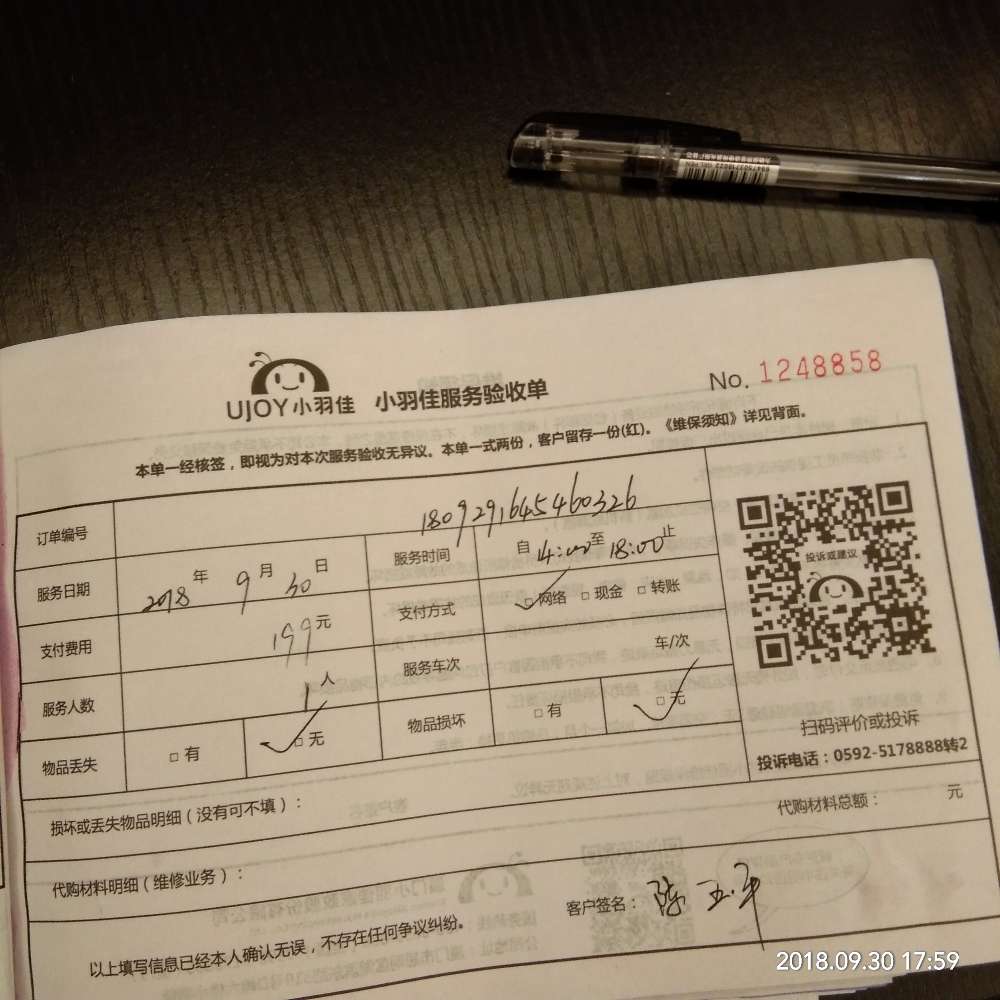 UJOY小羽佳 小羽佳服务验收单 No. 1248858
本单一经核签，即视为对本次服务验收无异议。本单一式两份，客户留存一份(红)。《维保须知》详见背面。
订单编号 180929164546​0326
服务日期 2018年 9月 30日 服务时间 自 14:00至 18:00止
支付费用 199元 支付方式 □网络 □现金 □转账
服务人数 1人 服务车次 车/次
物品丢失 □有 □无 物品损坏 □有 □无
投诉或建议
扫码评价或投诉
投诉电话：0592-5178888转2
损坏或丢失物品明细（没有可不填）：
代购材料明细（维修业务）： 代购材料总额： 元
以上填写信息已经本人确认无误，不存在任何争议纠纷。 客户签名： 陈玉平
2018.09.30 17:59